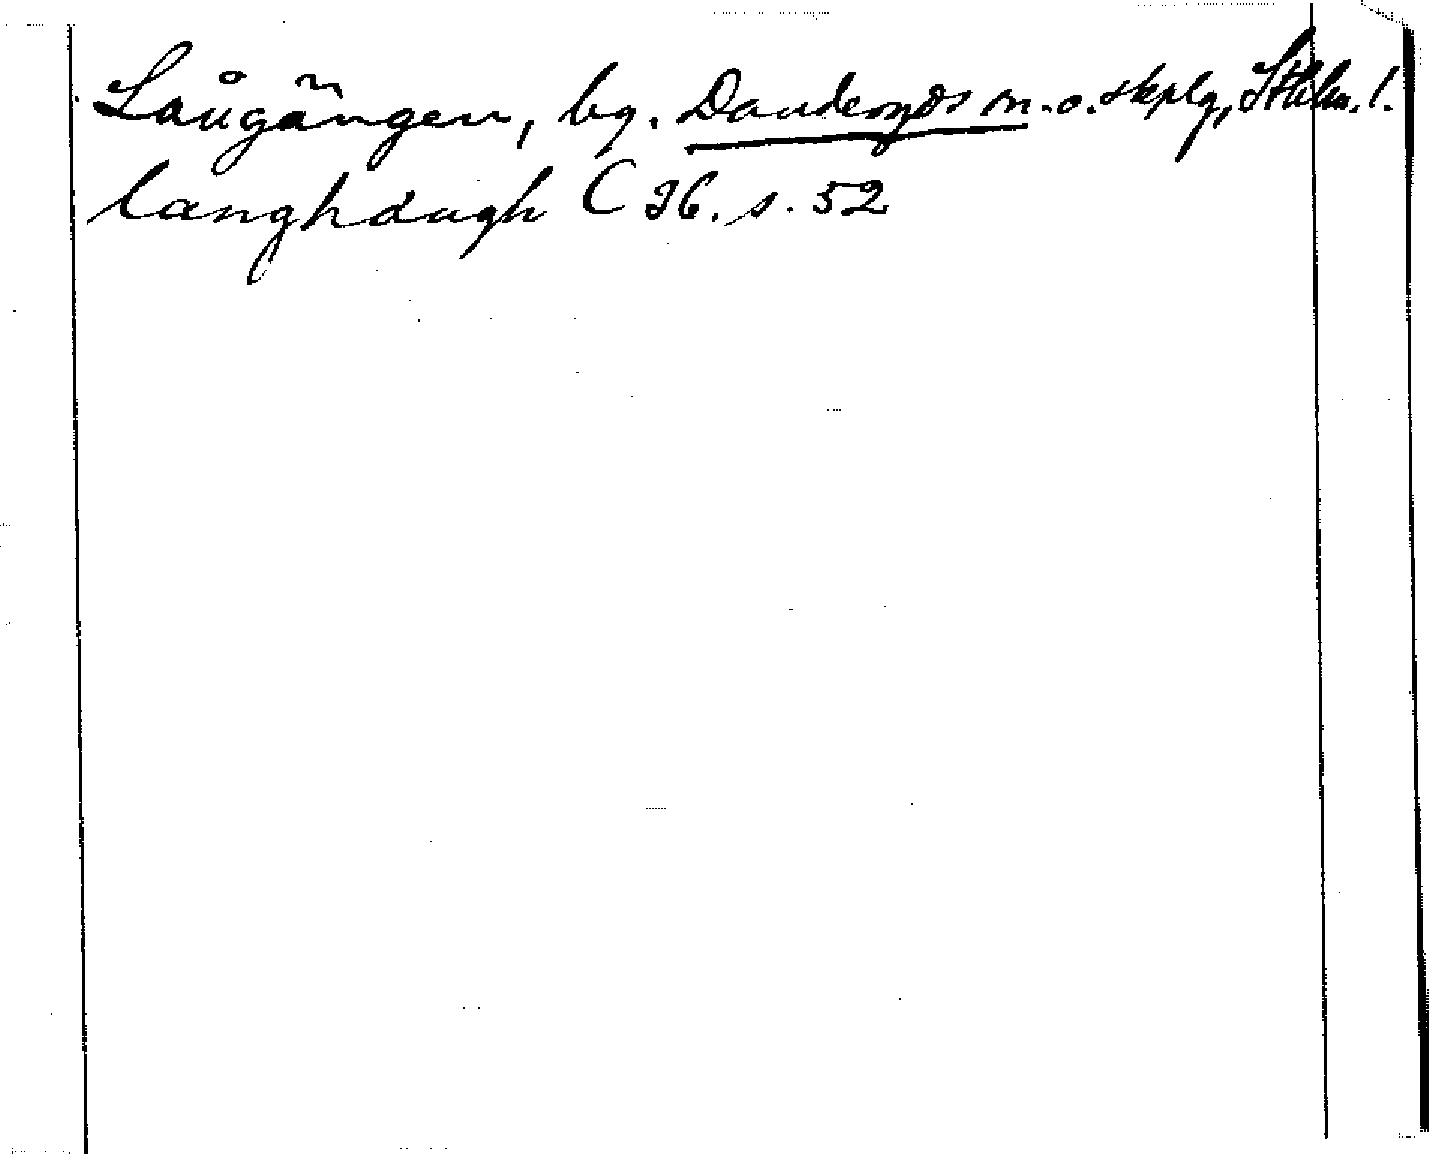 Långängen, bg. Danderyds sn. o. skplg, Sthlm. l.
langhdugh C 36. s. 52